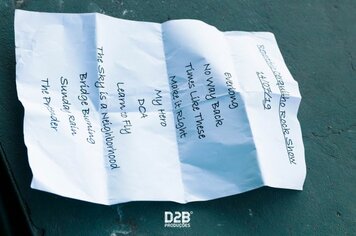 Rock Show
14/12/19
Everlong
No Way Back
Times Like These
Make it Right
My Hero
DOA
Learn to Fly
The Sky is a Neighborhood
Bridge Burning
Sunday Rain
The Pretender
D2B
PRODUÇÕES